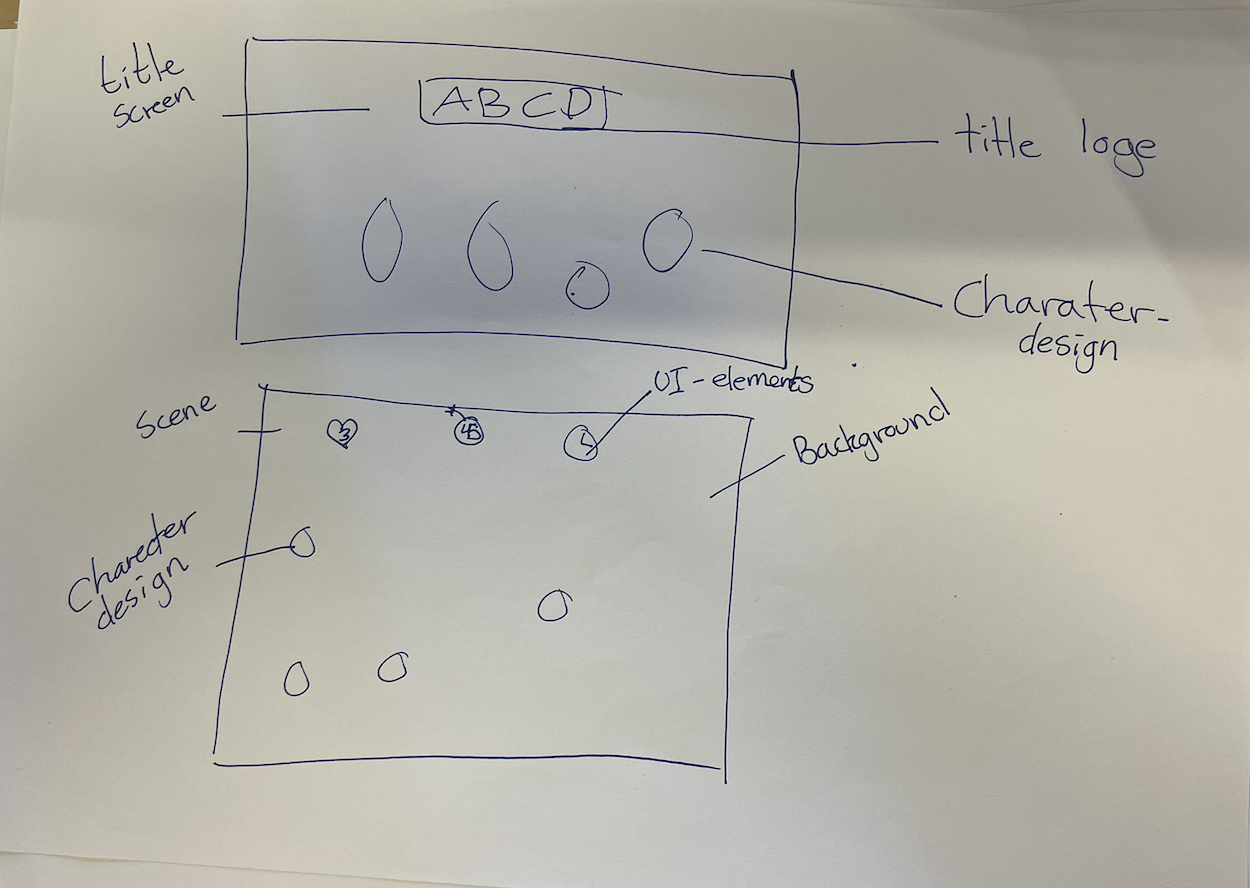 title
screen
ABCD
title loge
Charater-
design
UI-elements
Scene
3
45
Background
Charecter
design